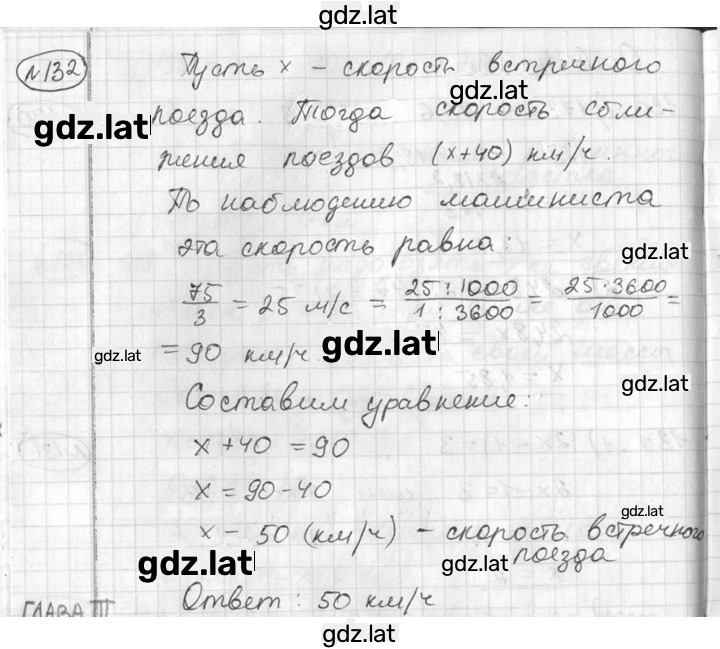 gdz.lat
№132 Пусть x – скорость встречного
gdz.lat
gdz.lat
поезда. Тогда скорость сбли-
жения поездов (x+40) км/ч.
По наблюдению машиниста
эта скорость равна:
gdz.lat
75/3 = 25 м/с = 25:1000/1:3600 = 25·3600/1000 =
= 90 км/ч
gdz.lat
gdz.lat
gdz.lat
Составим уравнение:
x+40 = 90
x = 90-40
gdz.lat
x = 50 (км/ч) – скорость встречного
gdz.lat
gdz.lat
поезда
Ответ: 50 км/ч
ГЛАВА III
gdz.lat